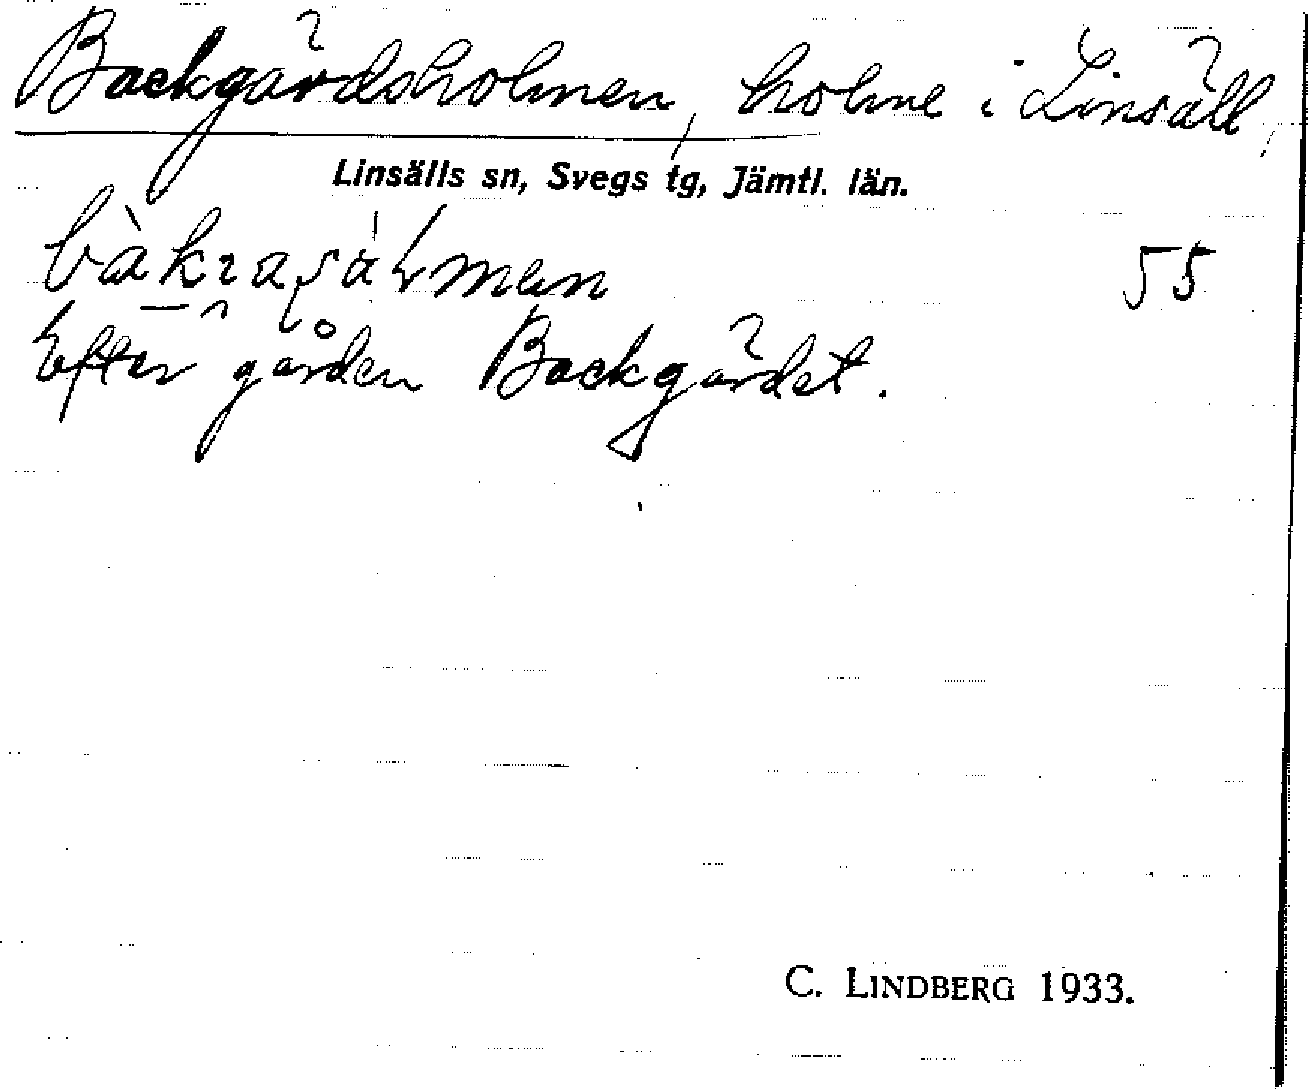 Backgärdsholmen, holme i Linsäll,
Linsälls sn, Svegs tg, Jämtl. län.
55
Efter gården Backgärdet.
C. LINDBERG 1933.